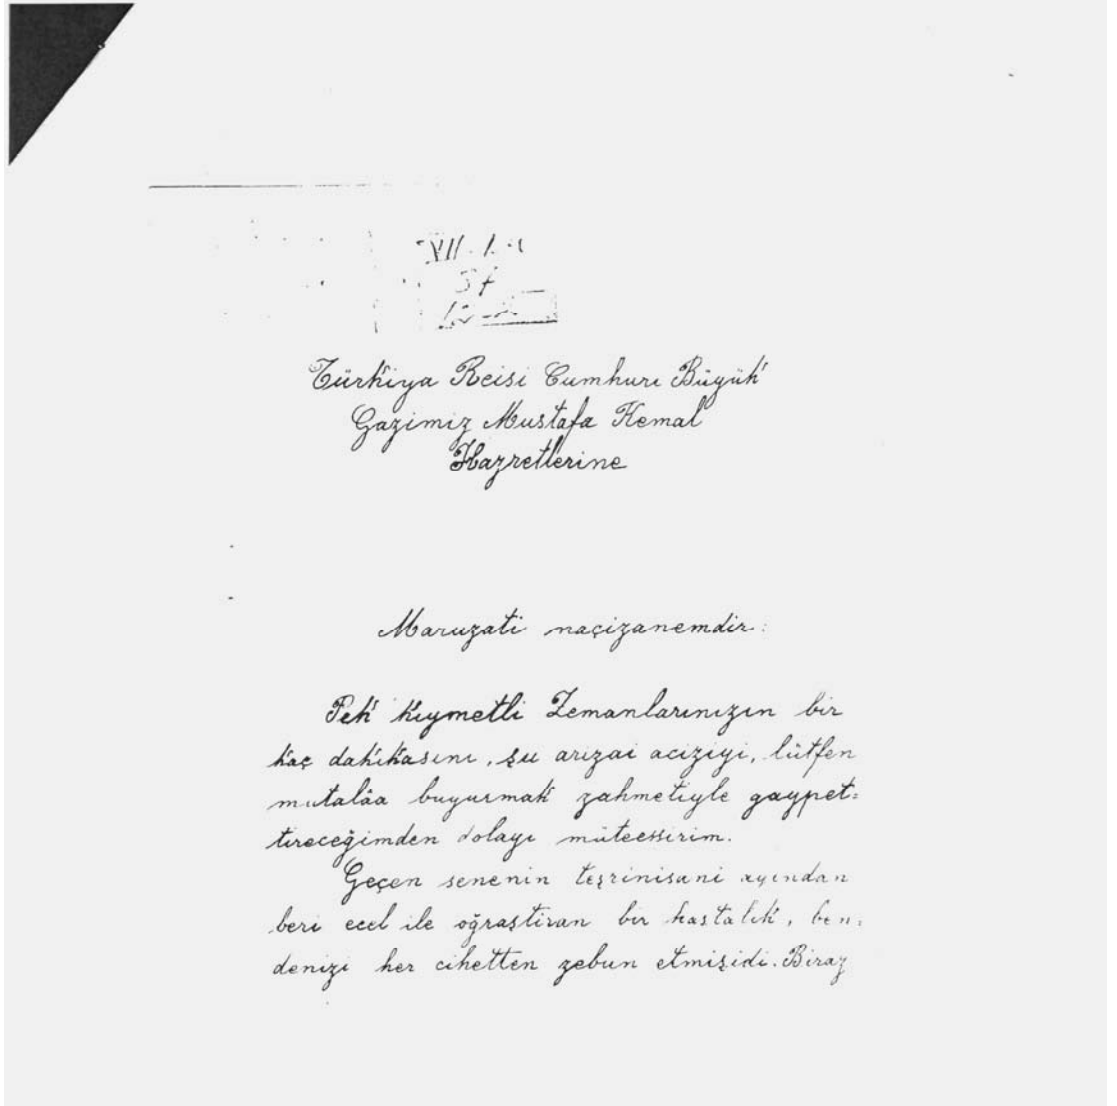 Türkiya Reisi Cumhurı Büyük
Gazimiz Mustafa Kemal
Hazretlerine
Maruzati naçizanemdir:
Pek kıymetli Zemanlarınızın bir
kaç dakikasını, şu arizai aciziyi, lütfen
mutalâa buyurmak zahmetiyle gaypet=
tireceğimden dolayı müteessirim.
Geçen senenin teşrinisani ayından
beri ecel ile oğraştiran bir hastalık, ben=
denizi her cihetten zebun etmişidi. Biraz